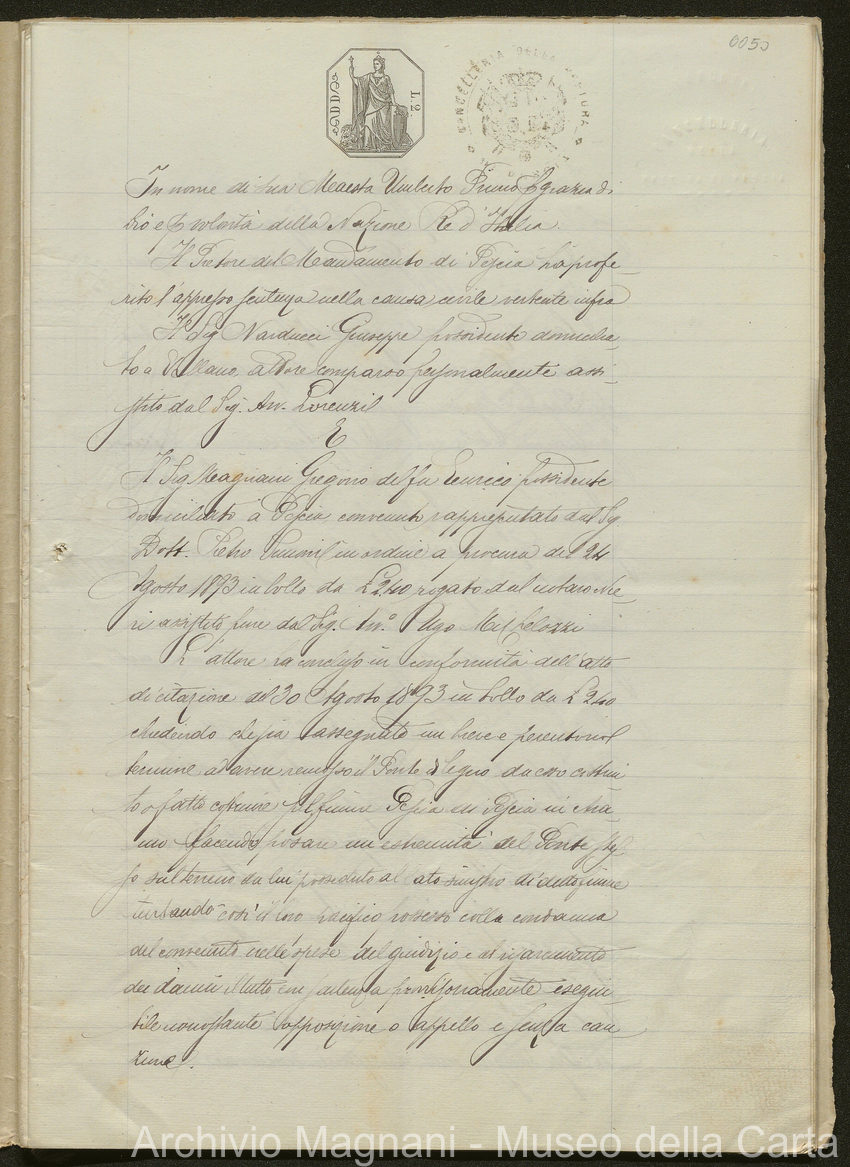 0050
L. 2.
CANCELLERIA DELLA PRETURA
In nome di Sua Maestà Umberto Primo p grazia di
Dio e p volontà della Nazione Re d'Italia
Il Pretore del Mandamento di Pescia ha profe-
rito l'appresso sentenza nella causa civile vertente infra
Il Sig Narducci Giuseppe possidente domicilia-
to a Vellano, attore comparso personalmente assi-
stito dal Sig. Avv. Lorenzi
E
Il Sig Magnani Gregorio del fu Enrico possidente
domiciliato a Pescia convenuto rappresentato dal Sig.
Dott. Pietro in ordine a procura del 24
Agosto 1893 in bollo da £ 2.40 rogato dal notaro Ne-
ri assistito pure dal Sig. Avv.o Ugo
L'attore ha concluso in conformità dell'atto
di citazione del 30 Agosto 1893 in bollo da £ 2.40
chiedendo che sia assegnato un breve e perentorio
termine ad avere remosso il Ponte di legno da esso costrui-
to o fatto costruire sul fiume Pescia di Pescia in
facendo posare un estremità del Ponte stes-
so sul terreno da lui posseduto al lato sinistro di detto fiume
turbando così il loro pacifico possesso colla condanna
del convenuto nelle spese del giudizio e al risarcimento
dei danni il tutto con sentenza provvisoriamente esegui-
bile nonostante opposizione o appello e senza cau-
zione.
Archivio Magnani - Museo della Carta